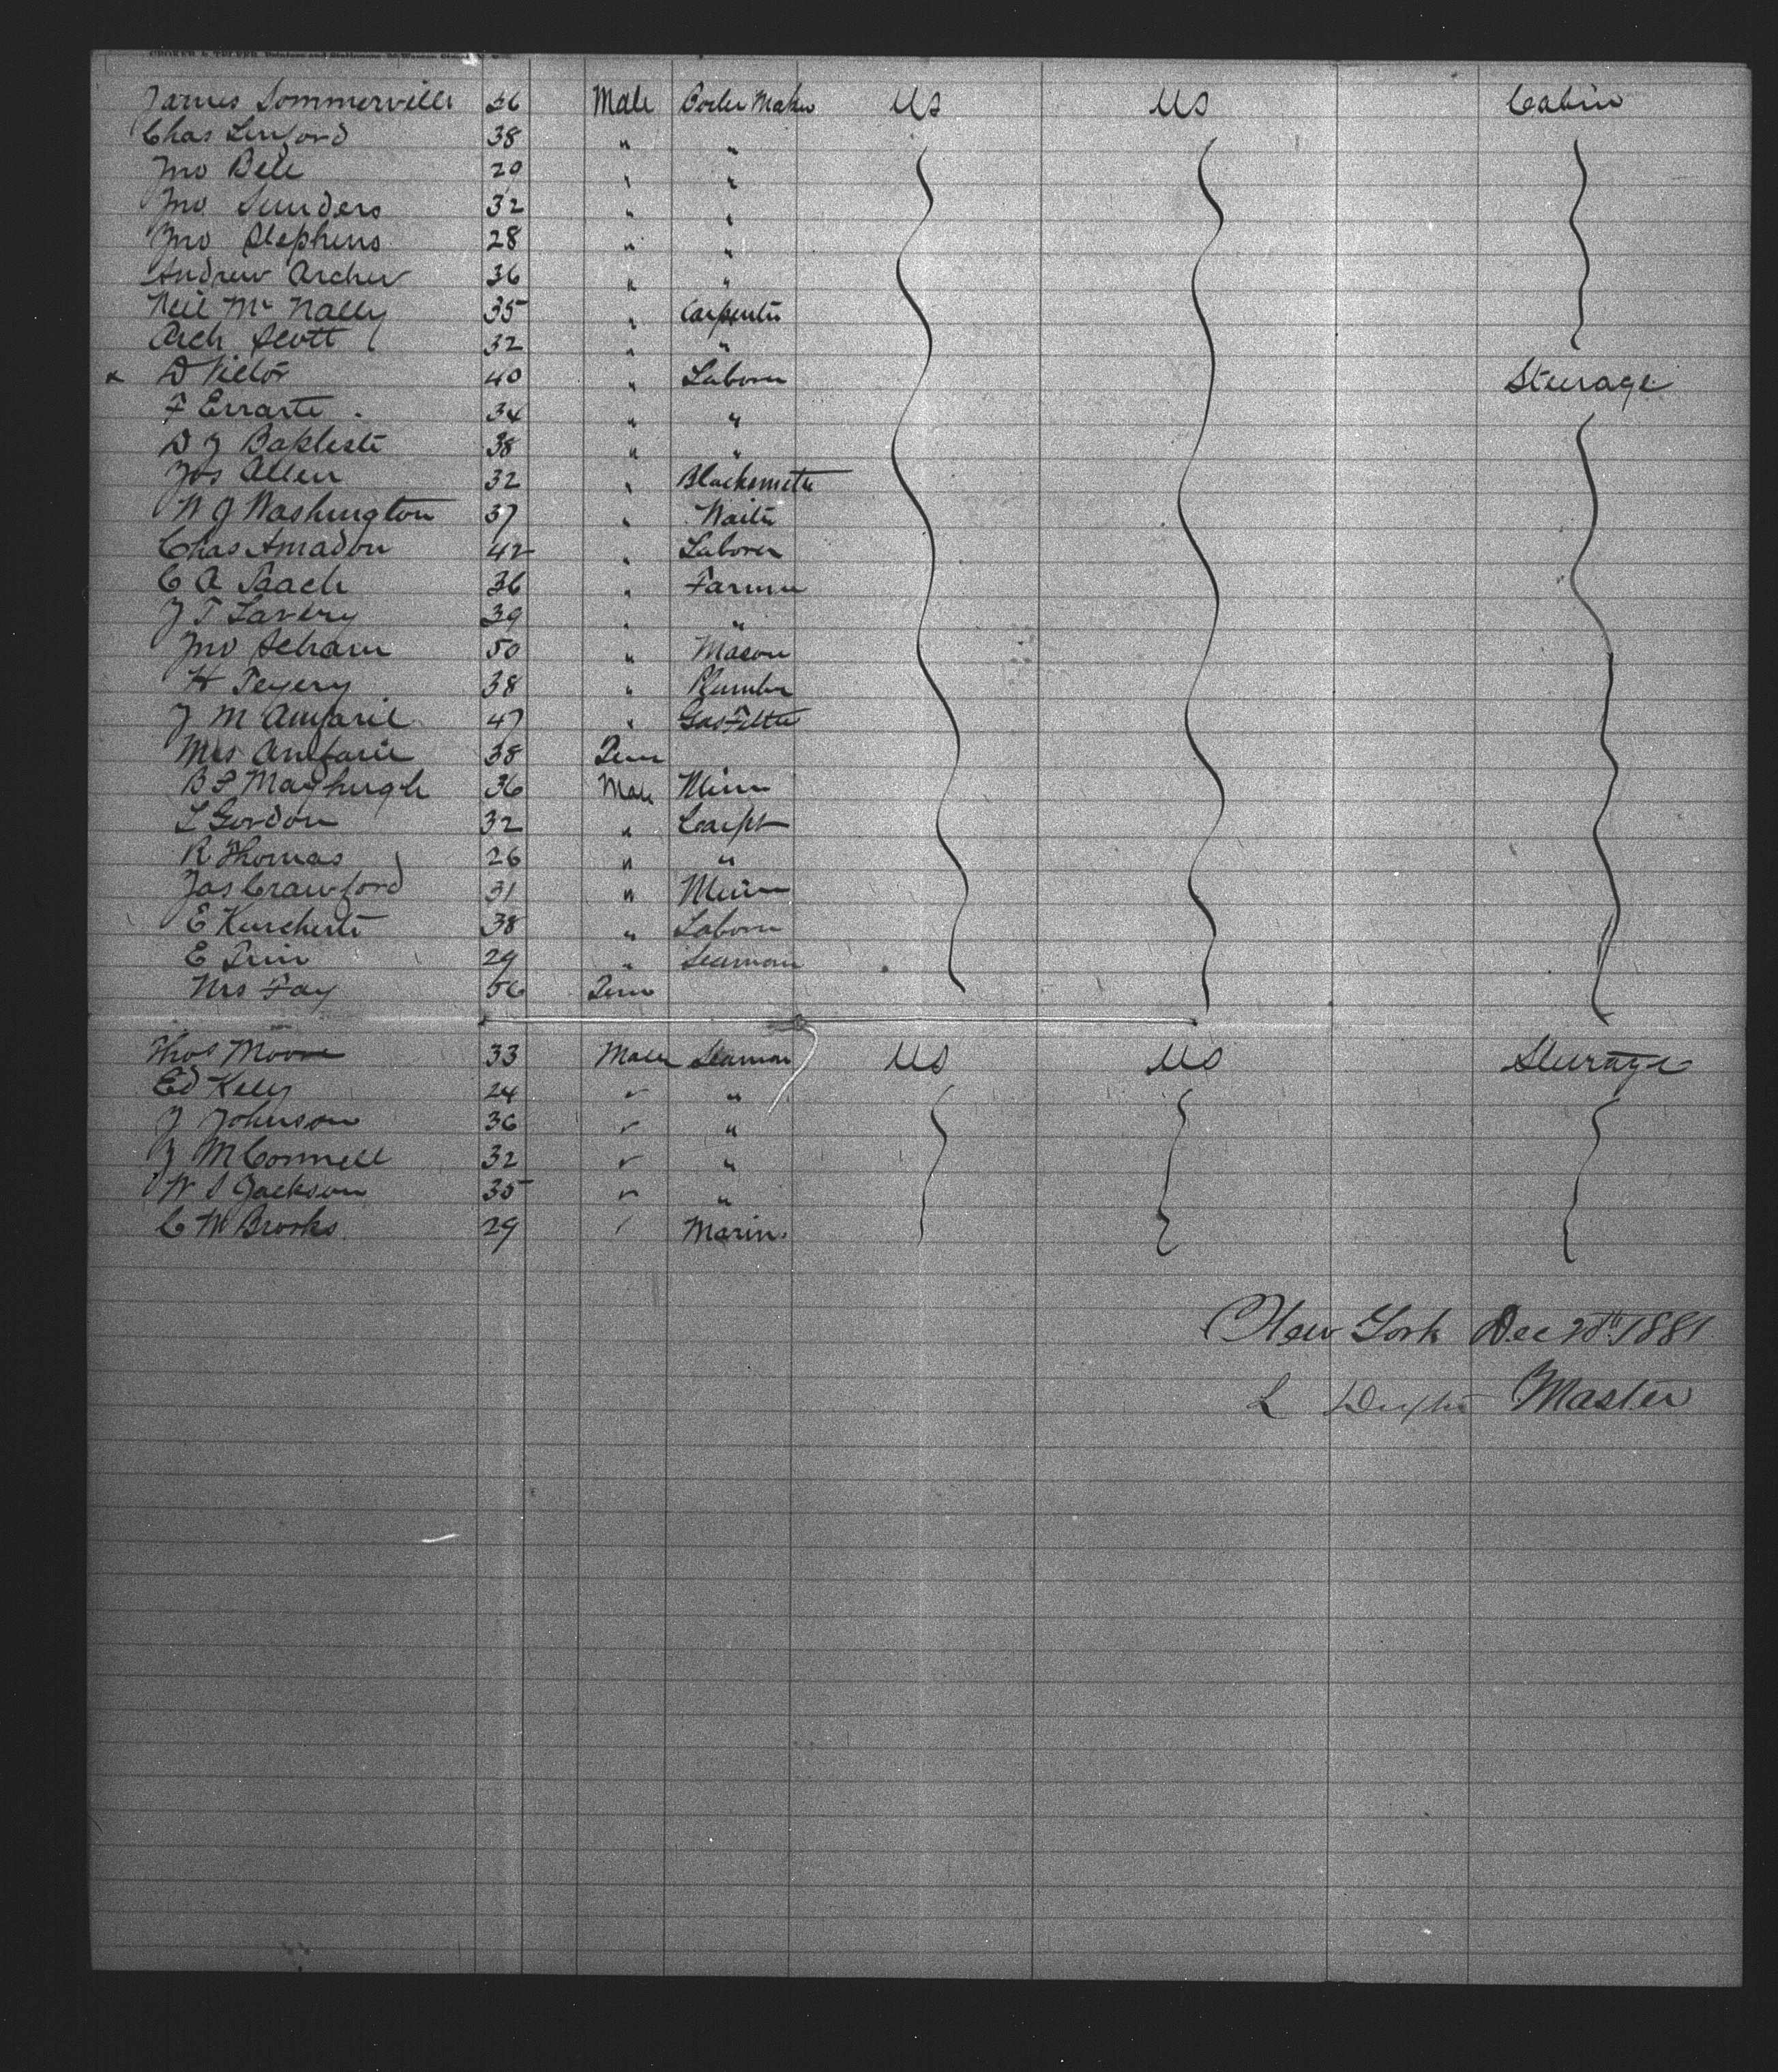 James Sommerville 36 Male Boiler Maker US US Cabin
Chas Linford 38 " "
Jno Bell 29 " "
Jno Sunders 32 " "
Jno Stephens 28 " "
Andrew Archer 36 " "
Neil Mc Nally 35 " Carpenter
Arch Scott 32 " "
x D Victor 40 " Laborer Steerage
F Errarte 34 " "
D J Baptiste 38 " "
Jos Allen 32 " Blacksmith
W J Washington 37 " Waiter
Chas Amadon 42 " Laborer
C A 36 " Farmer
J T Lavery 39 " "
Jno Schram 50 " Mason
H 38 " Plumber
J M 47 " Gas Fitter
Mrs 38 Fem
B F Mayhugh 36 Male Miner
L Gordon 32 " Carpt
R Thomas 26 " "
Jas Crawford 31 " Miner
E 38 " Laborer
E 29 " Seaman
Mrs Fay 56 Fem
Thos Moore 33 Male Seaman US US Steerage
Ed Kelly 24 " "
J Johnson 36 " "
J McConnell 32 " "
W S Jackson 35 " "
C W Brooks 29 " Marine
New York Dec 20th 1881
L Master